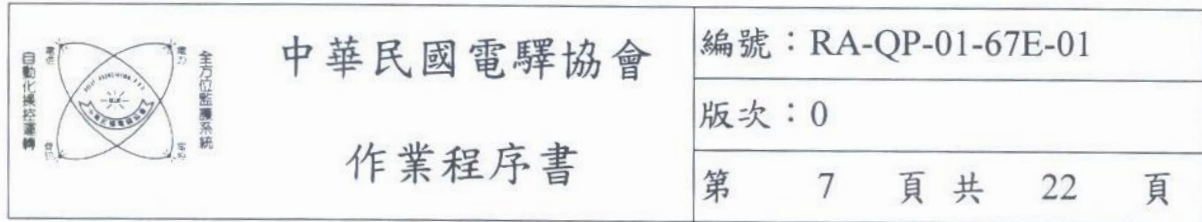 自動化操控運轉
全方位監護系統
中華民國電驛協會
作業程序書
編號：RA-QP-01-67E-01
版次：0
第 7 頁 共 22 頁